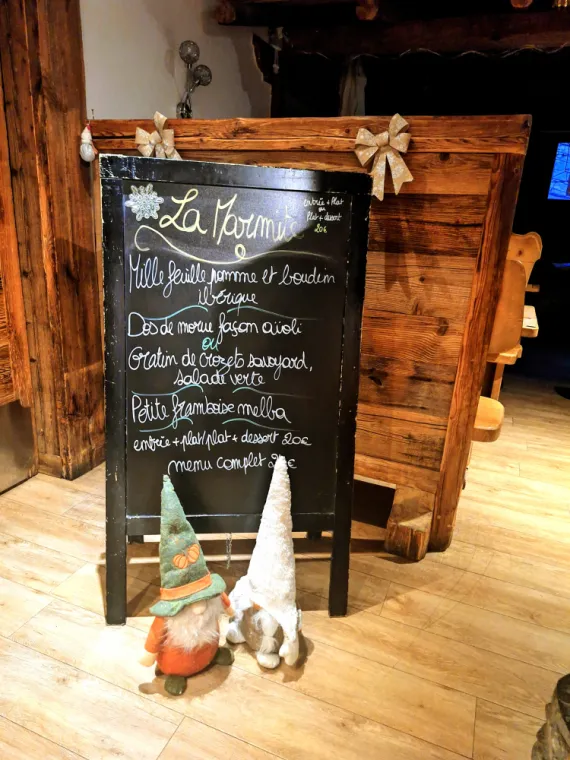 La Marmite
entrée + Plat
ou
Plat + dessert
20€
Mille feuille pomme et boudin
ibérique
Dos de morue façon aïoli
ou
Gratin de Crozets savoyard,
salade verte
Petite framboise melba
entrée + plat/plat + dessert 20€
menu complet